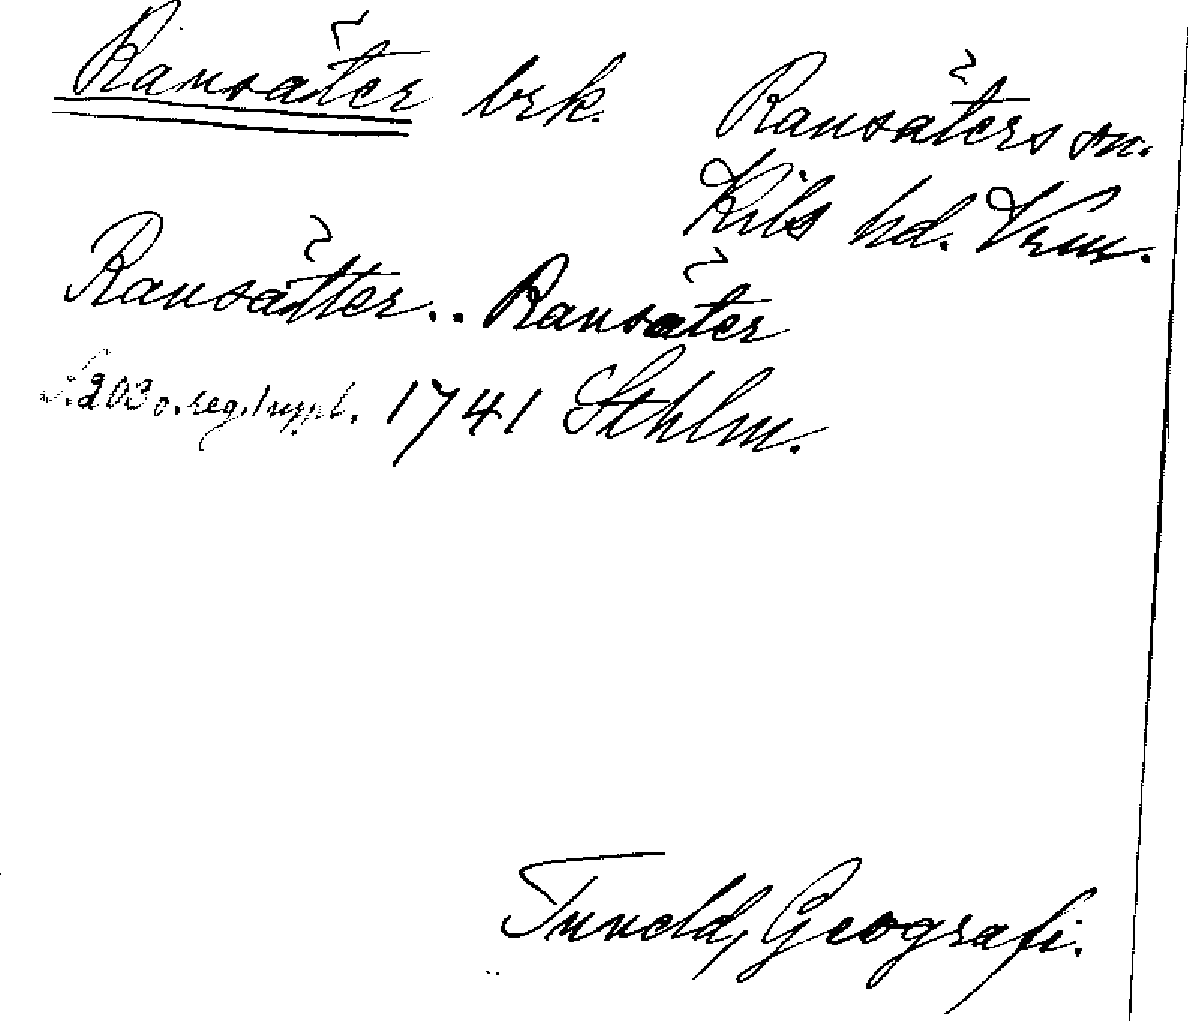 Ransäter brk. Ransäters sn.
Kils hd. Vrm.
Ransätter.. Ransäter
s. 203 o. reg. suppl. 1741 Sthlm.
Tuneld, Geografi.